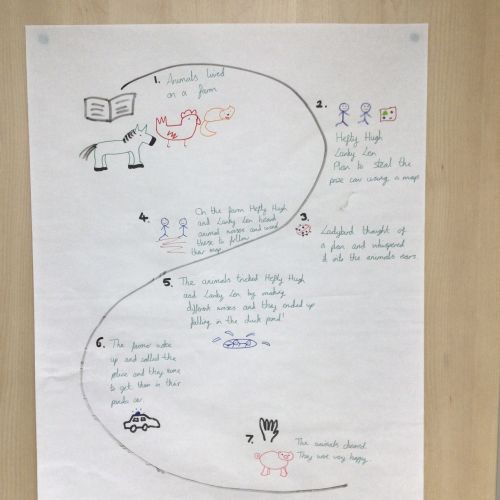 1. Animals lived
on a farm
2.
Hefty Hugh
Lanky Len
Plan to steal the
prize cow using a map
3. Ladybird thought of
a plan and whispered
it into the animals ears.
4. On the farm Hefty Hugh
and Lanky Len heard
animal noises and used
these to follow
their map
5. The animals tricked Hefty Hugh
and Lanky Len by making
different noises and they ended up
falling in the duck pond!
6. The farmer woke
up and called the
police and they came
to get them in their
panda car.
7. The animals cheered.
They were very happy.